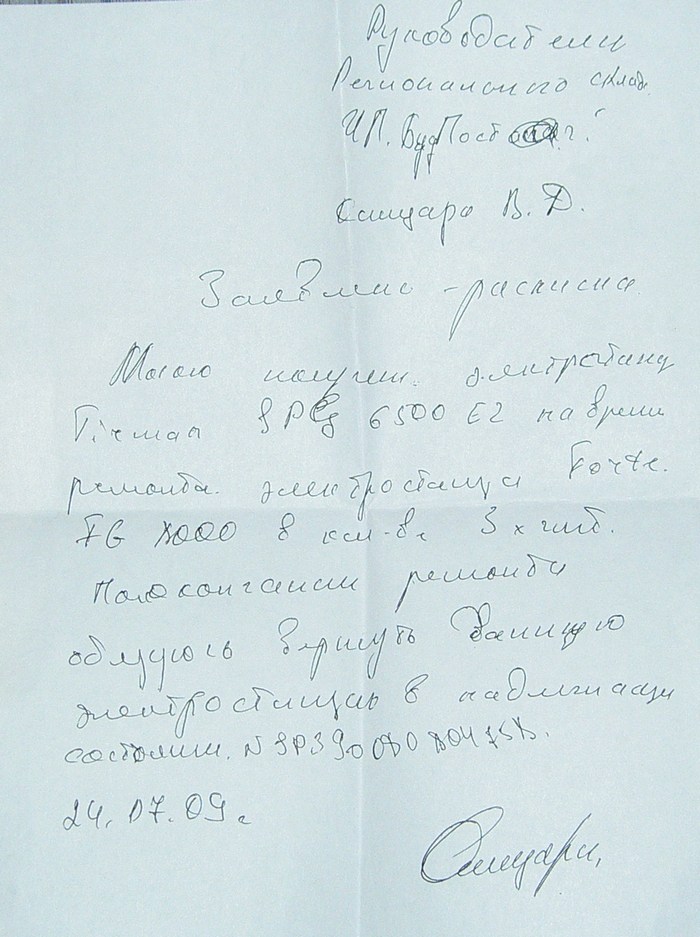 Руководателю
Регионального склада
ИП. БудПост
В. Д.
Заявление - расписка
получить электростанц
Firman SPG 6500 E2 на время
ремонта электростанции Forte
FG 8000 в кол-ве 3х шт.
По окончании ремонта
обязуюсь вернуть данную
электростанцию в надлежащем
состоянии. N
24. 07. 09 г